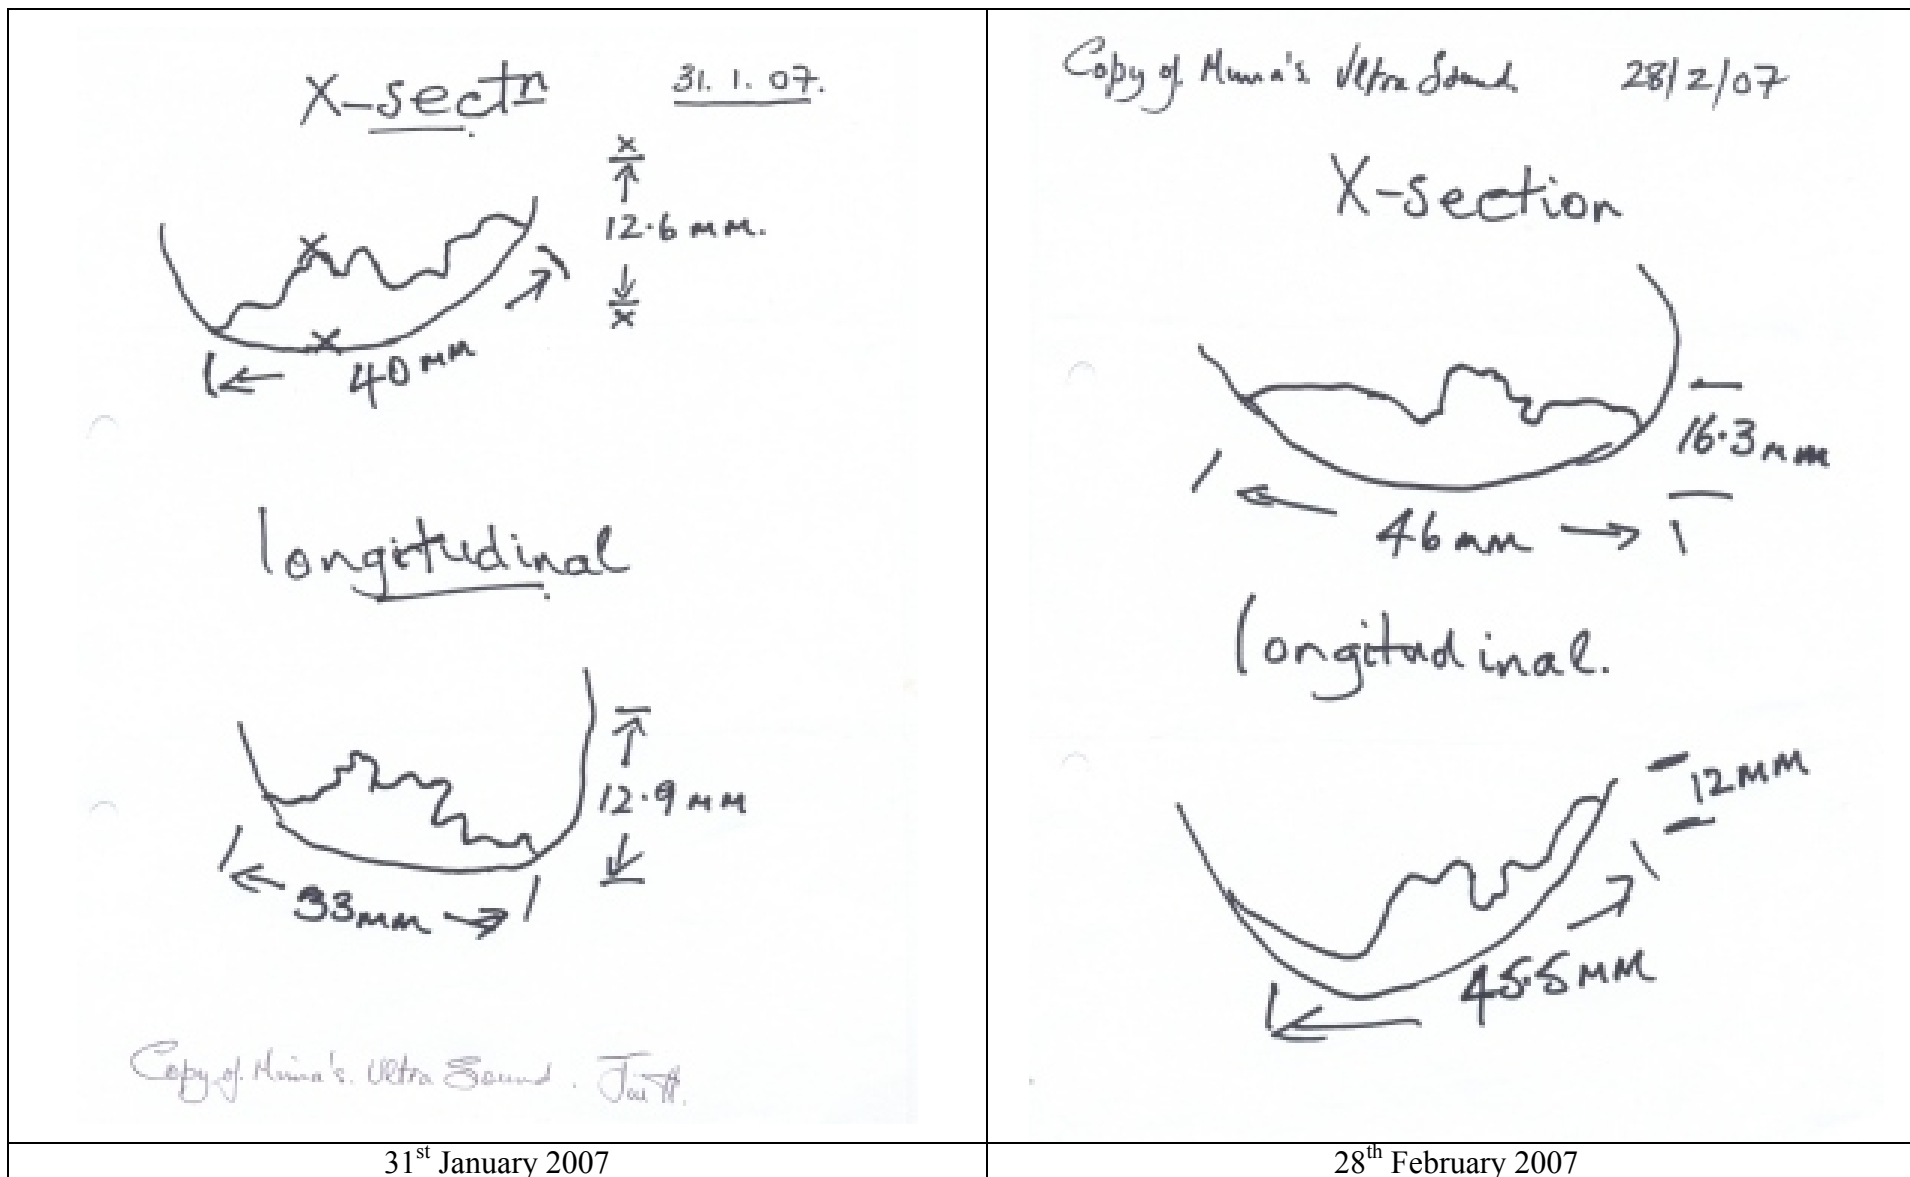 X-sectn
31. 1. 07.
x
12.6 mm.
x
40 mm
longitudinal
12.9 mm
33mm
Copy of Muna's. Ultra Sound.
31st January 2007
Copy of Muna's. Ultra Sound. 28/2/07
X-section
16.3mm
46mm
longitudinal.
12mm
45.5mm
28th February 2007